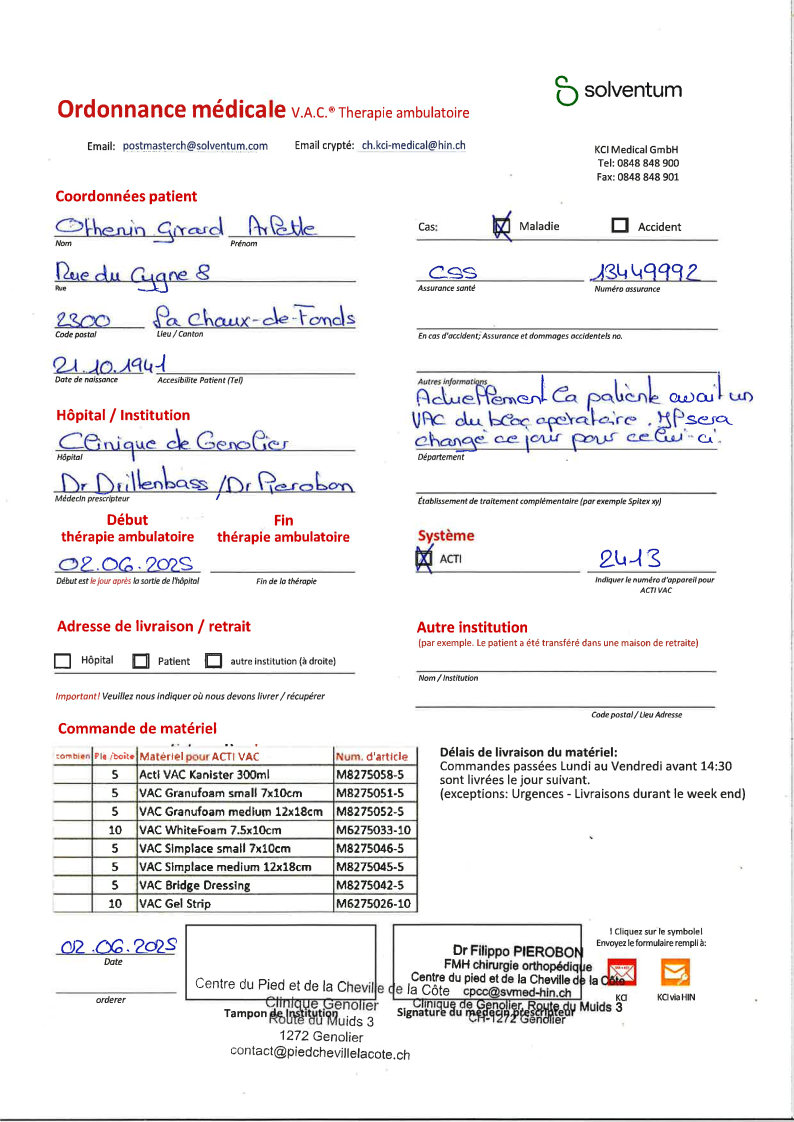 solventum
Ordonnance médicale V.A.C.® Therapie ambulatoire
Email: postmasterch@solventum.com Email crypté: ch.kci-medical@hin.ch
KCI Medical GmbH
Tel: 0848 848 900
Fax: 0848 848 901
Coordonnées patient
Othenin Girard Arlette
Nom Prénom
Cas: Maladie Accident
Rue du Cygne 8
Rue
CSS 13449992
Assurance santé Numéro assurance
2300 La Chaux-de-Fonds
Code postal Lieu / Canton
En cas d'accident; Assurance et dommages accidentels no.
21.10.1941
Date de naissance Accesibilite Patient (Tel)
Autres informations
Actuellement la patiente avait un
VAC du bloc opératoire. Il sera
changé ce jour pour celui-ci.
Département
Hôpital / Institution
Clinique de Genolier
Hôpital
Dr Drillenbass / Dr Pierobon
Médecin prescripteur
Établissement de traitement complémentaire (par exemple Spitex xy)
Début
thérapie ambulatoire
Fin
thérapie ambulatoire
02.06.2025
Début est le jour après la sortie de l'hôpital Fin de la thérapie
Système
ACTI 2413
Indiquer le numéro d'appareil pour
ACTI VAC
Adresse de livraison / retrait
Hôpital Patient autre institution (à droite)
Important! Veuillez nous indiquer où nous devons livrer / récupérer
Autre institution
(par exemple. Le patient a été transféré dans une maison de retraite)
Nom / Institution
Code postal / Lieu Adresse
Commande de matériel
combien Pie /boite Matériel pour ACTI VAC Num. d'article
5 Acti VAC Kanister 300ml M8275058-5
5 VAC Granufoam small 7x10cm M8275051-5
5 VAC Granufoam medium 12x18cm M8275052-5
10 VAC WhiteFoam 7.5x10cm M6275033-10
5 VAC Simplace small 7x10cm M8275046-5
5 VAC Simplace medium 12x18cm M8275045-5
5 VAC Bridge Dressing M8275042-5
10 VAC Gel Strip M6275026-10
Délais de livraison du matériel:
Commandes passées Lundi au Vendredi avant 14:30
sont livrées le jour suivant.
(exceptions: Urgences - Livraisons durant le week end)
02.06.2025
Date
orderer
Centre du Pied et de la Cheville de la Côte
Clinique Genolier
Tampon de Institution
Route du Muids 3
1272 Genolier
contact@piedchevillelacote.ch
Dr Filippo PIEROBON
FMH chirurgie orthopédique
Centre du pied et de la Cheville de la Côte
cpcc@svmed-hin.ch
Clinique de Genolier, Route du Muids 3
Signature du médecin prescripteur
CH-1272 Genolier
! Cliquez sur le symbole!
Envoyez le formulaire rempli à:
KCI KCI via HIN